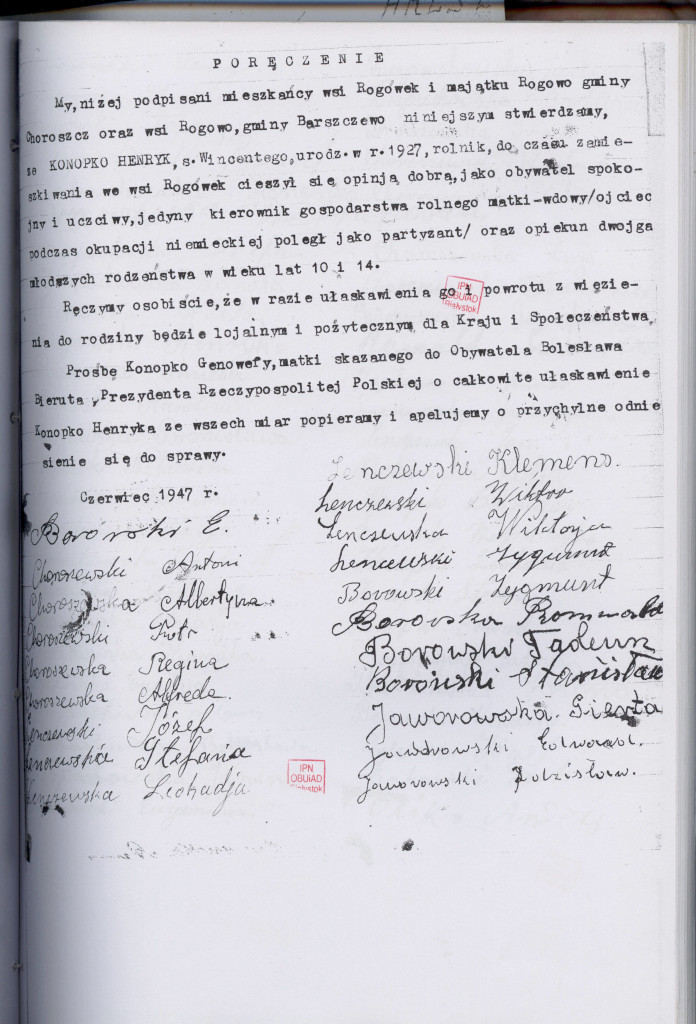 P O R Ę C Z E N I E
My,niżej podpisani mieszkańcy wsi Rogówek i majątku Rogowo gminy
Choroszcz oraz wsi Rogowo,gminy Barszczewo niniejszym stwierdzamy,
że KONOPKO HENRYK,s.Wincentego,urodz.w r.1927,rolnik,do czasu zamie-
szkiwania we wsi Rogówek cieszył się opinją dobrą,jako obywatel spoko-
jny i uczciwy,jedyny kierownik gospodarstwa rolnego matki-wdowy/ojciec
podczas okupacji niemieckiej poległ jako partyzant/ oraz opiekun dwojga
młodszych rodzeństwa w wieku lat 10 i 14.
Ręczymy osobiście,że w razie ułaskawienia go i powrotu z więzie-
nia do rodziny będzie lojalnym i pożytecznym dla Kraju i Społeczeństwa
Prośbę Konopko Genowefy,matki skazanego do Obywatela Bolesława
Bieruta,Prezydenta Rzeczypospolitej Polskiej o całkowite ułaskawienie
Konopko Henryka ze wszech miar popieramy i apelujemy o przychylne odnie
sienie się do sprawy.
Czerwiec 1947 r.
IPN
OBUiAD
Białystok
Borowski E.
Choroszewski Antoni
Choroszewska Albertyna
Choroszewski Piotr
Choroszewska Regina
Choroszewska Alfreda.
Lenczewski Józef
Lenczewska Stefania
Lenczewska Leokadja
Lenczewski Klemens.
Lenczewski Wiktor
Lenczewska Wiktorja
Lenczewski Zygmunt
Borowski Zygmunt
Borowska Romualda
Borowski Tadeusz
Borowski Stanisław
Jaworowska
Jaworowski Edward.
Jaworowski Zdzisław.
IPN
OBUiAD
Białystok